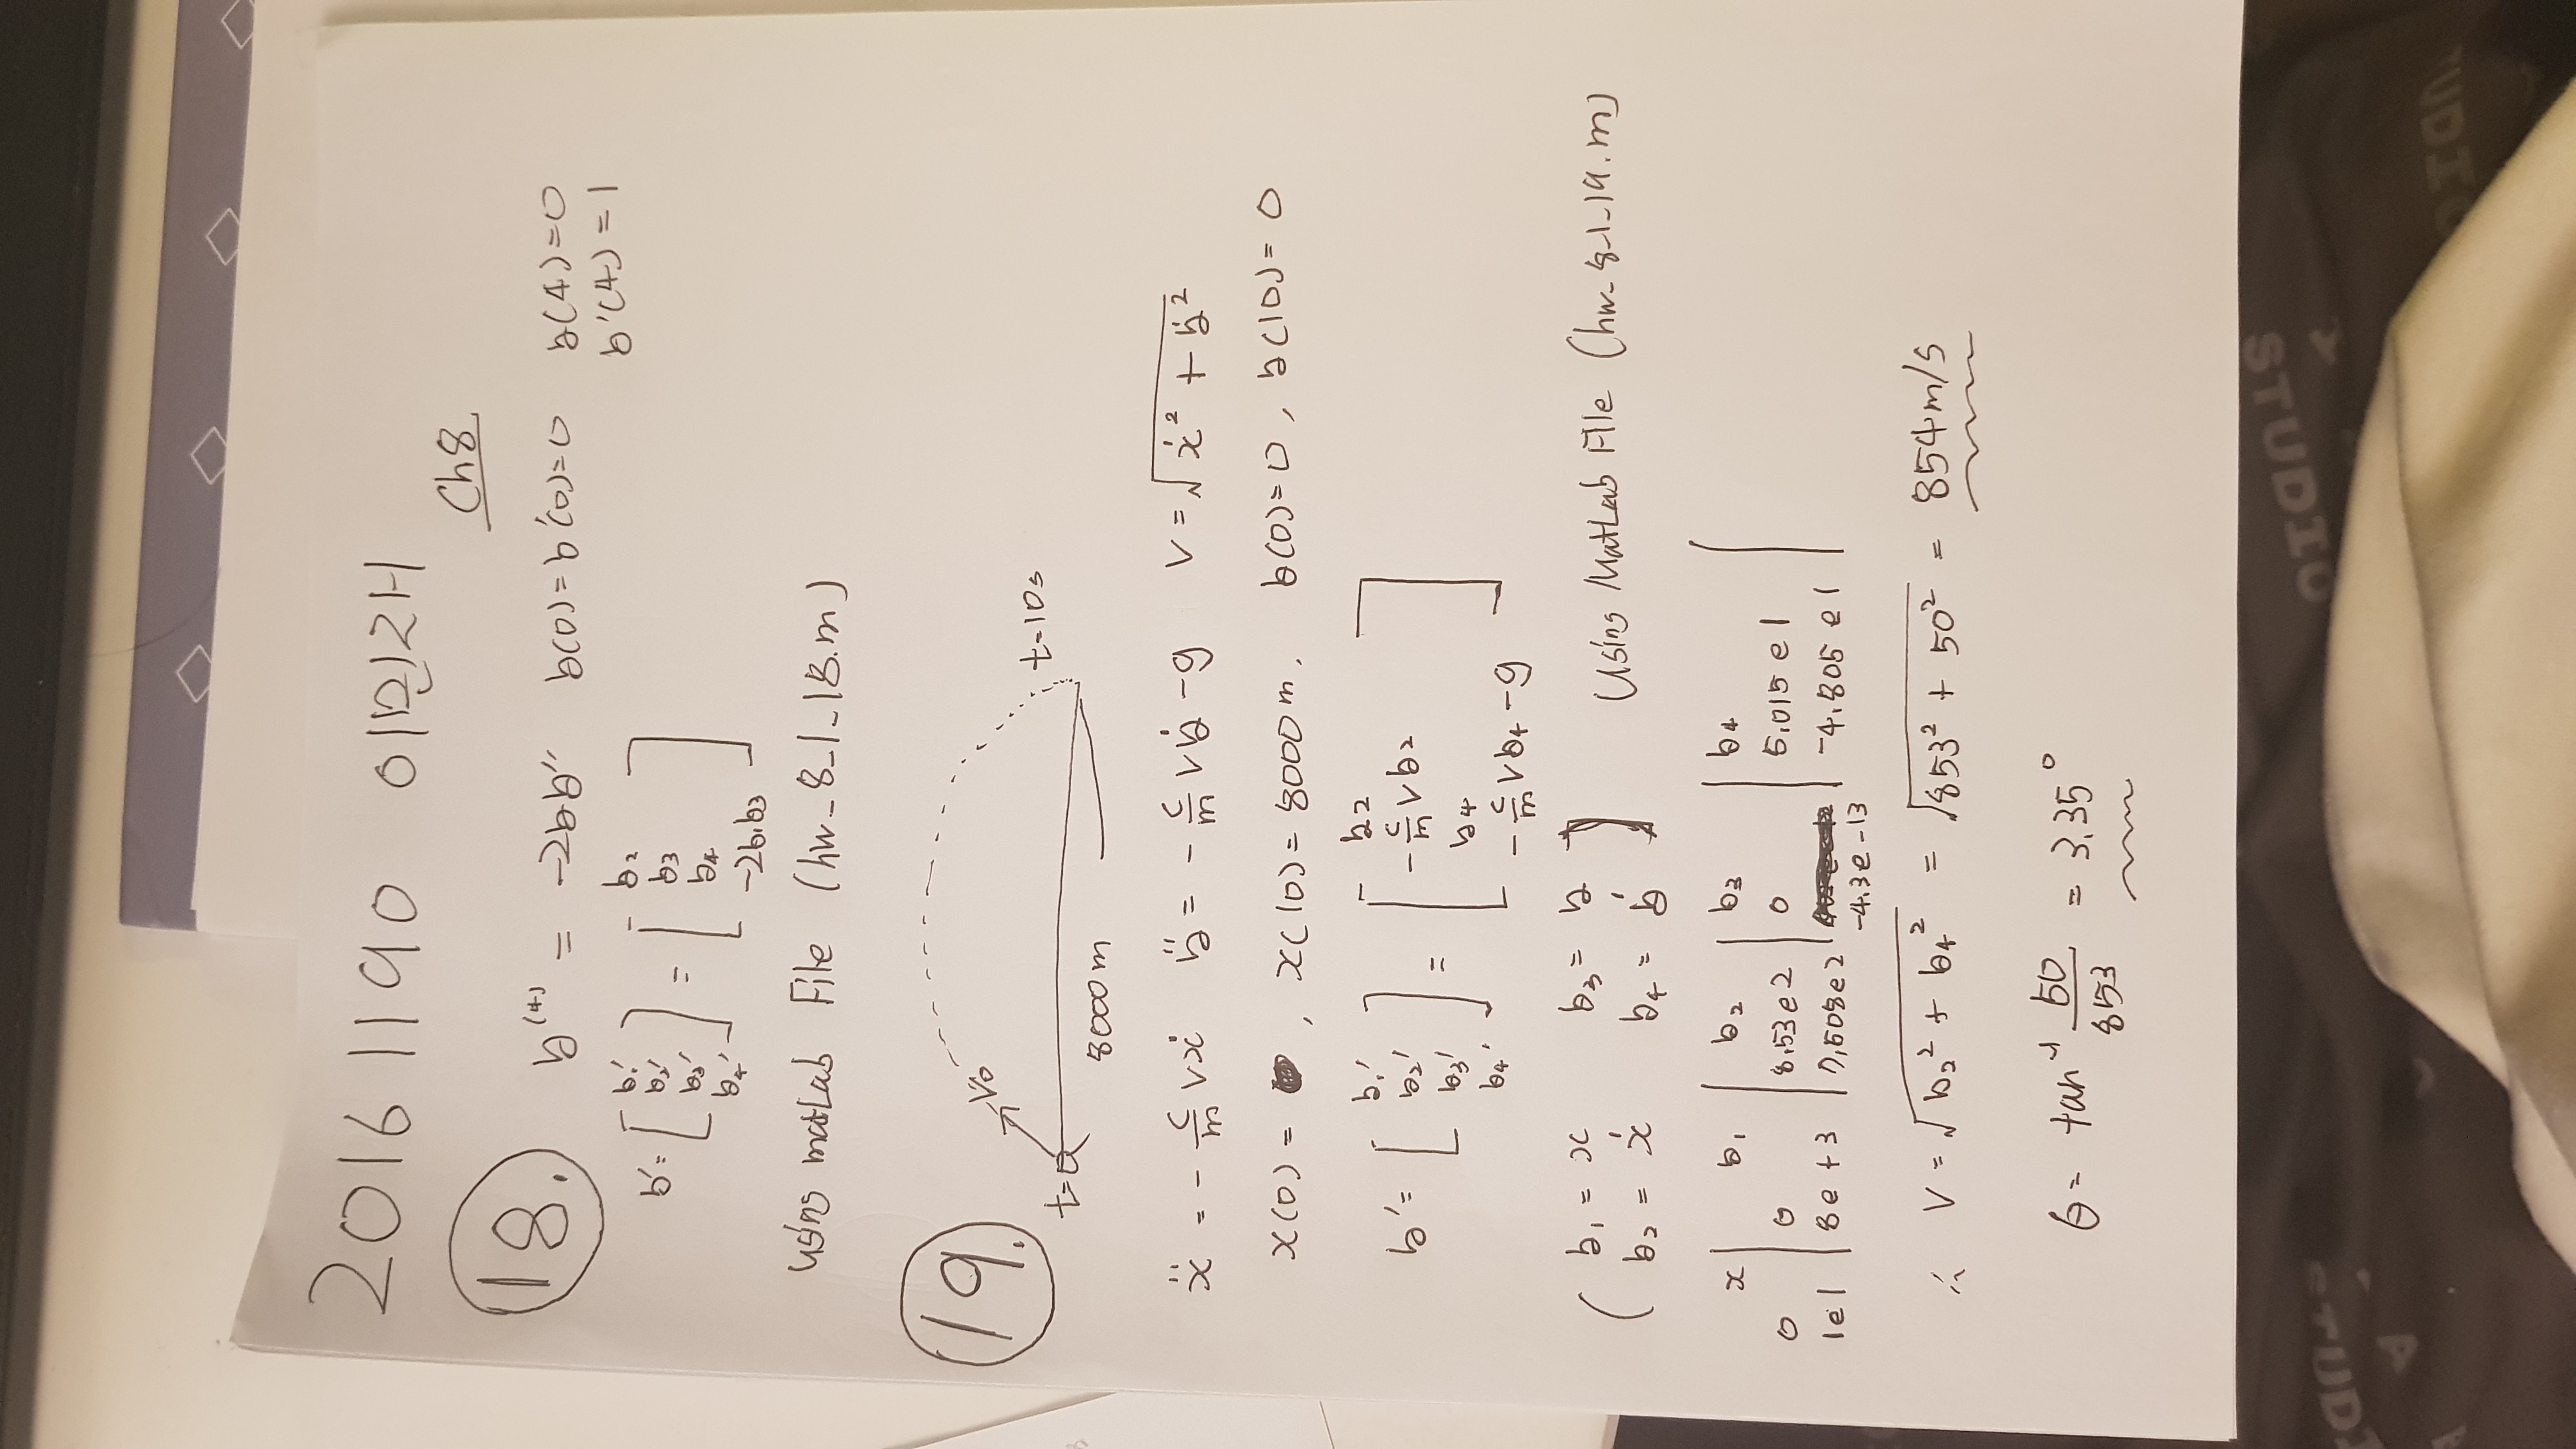 20161190 이민재
Ch8
18. y⁽⁴⁾ = -2yy″ y(0)=y′(0)=0 y(4)=0
y′(4)=1
y′= [ y₁′ y₂′ y₃′ y₄′ ] = [ y₂ y₃ y₄ -2y₁y₃ ]
using matLab File (hw_8_1_18.m)
19.
V₀
t=0
t=10s
8000m
ẍ = - c/m vẋ ÿ = - c/m vẏ -g v = √(ẋ² + ẏ²)
x(0) = 0, x(10)=8000m, y(0)=0, y(10)=0
y′= [ y₁′ y₂′ y₃′ y₄′ ] = [ y₂ -c/m vy₂ y₄ -c/m vy₄ -g ]
( y₁ = x y₃ = y )
y₂ = ẋ y₄ = ẏ
Using MatLab File (hw_8_1_19.m)
x | y₁ | y₂ | y₃ | y₄ |
0 | 0 | 8.53e2 | 0 | 5.015 e1
1e1 | 8e+3 | 7.508e2 | -4.3e-13 | -4.805 e1
∴ V = √(y₂² + y₄²) = √(853² + 50²) = 854m/s
θ= tan⁻¹ 50/853 = 3.35°
STUDIO
STUDI
A
A
UDIO